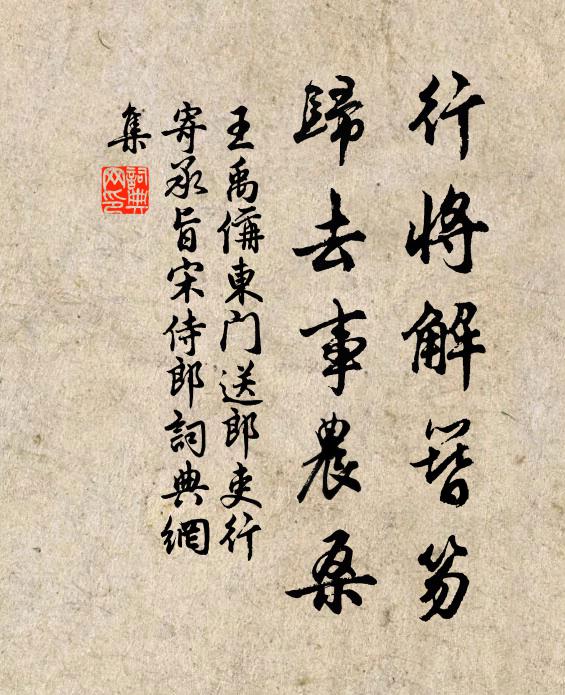 行將解簪笏
歸去事農桑
王禹偁東门送郎吏行
寄承旨宋侍郎詞典網
集
詞典
网印